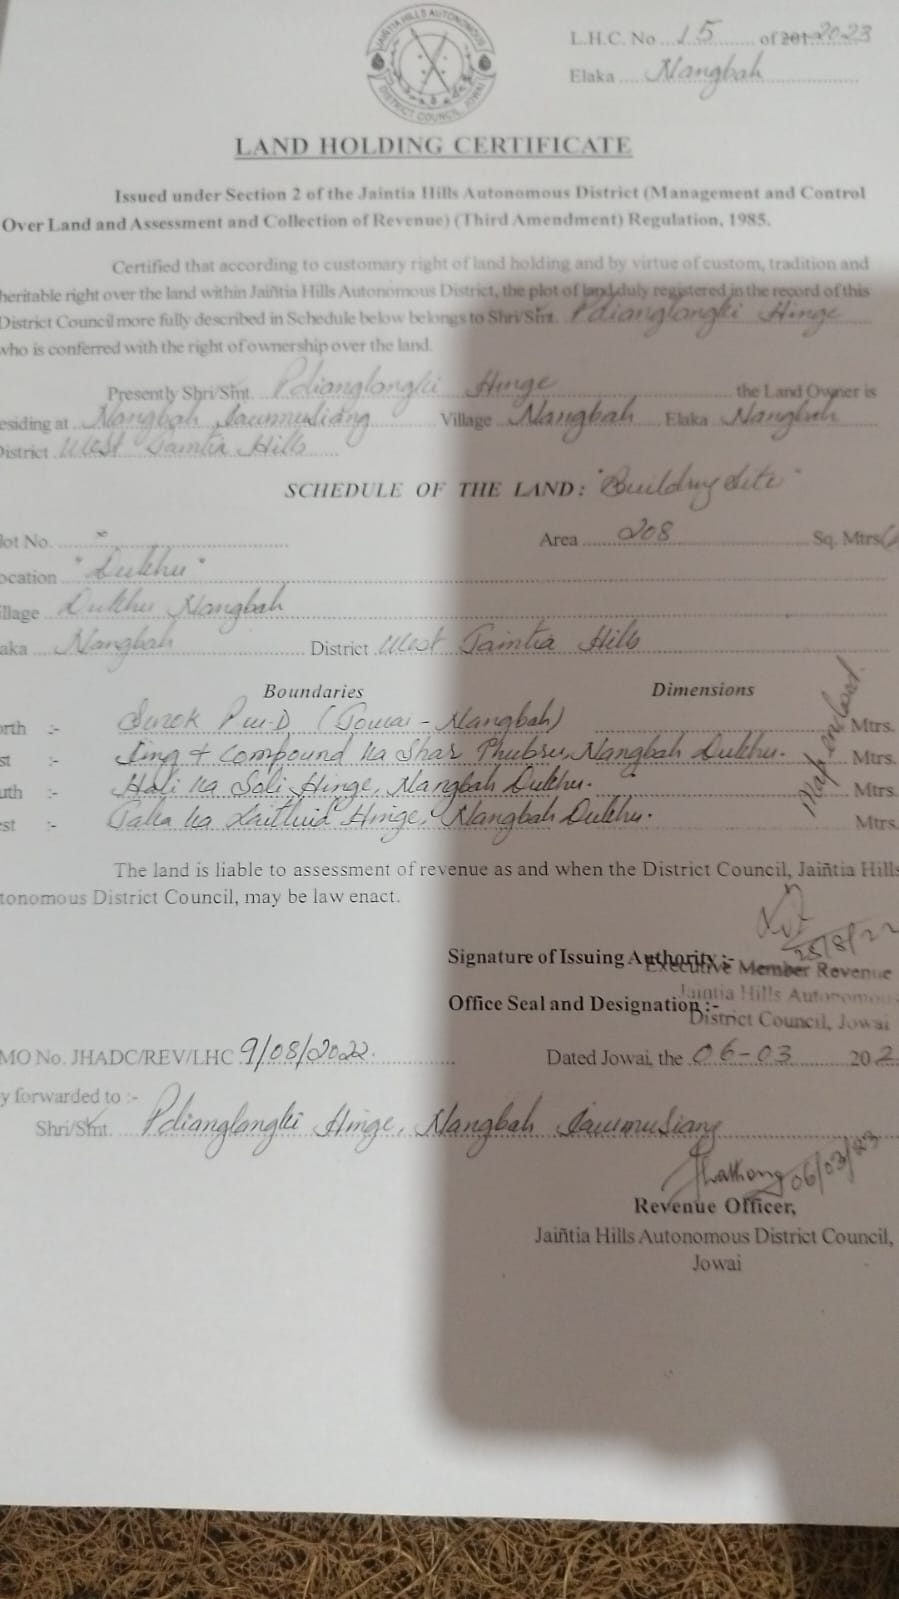 JAINTIA HILLS AUTONOMOUS
DISTRICT COUNCIL, JOWAI
L.H.C. No. 15 of 201 2023
Elaka Nangbah
LAND HOLDING CERTIFICATE
Issued under Section 2 of the Jaintia Hills Autonomous District (Management and Control
Over Land and Assessment and Collection of Revenue) (Third Amendment) Regulation, 1985.
Certified that according to customary right of land holding and by virtue of custom, tradition and
heritable right over the land within Jaiñtia Hills Autonomous District, the plot of land duly registered in the record of this
District Council more fully described in Schedule below belongs to Shri/Smt. Pdianglangki Hinge
who is conferred with the right of ownership over the land.
Presently Shri/Smt. Pdianglangki Hinge the Land Owner is
esiding at Nangbah Village Nangbah Elaka Nangbah
District West Jaintia Hills
SCHEDULE OF THE LAND: "Building site"
lot No. Area 208 Sq. Mtrs
ocation "Dukhu"
illage Dukhu Nangbah
aka Nangbah District West Jaintia Hills
Boundaries Dimensions
orth :- Surok P.W.D (Jowai - Nangbah) Mtrs.
st :- compound ka Shar Nangbah Dukhu. Mtrs.
uth :- Hali ka Soli Hinge, Nangbah Dukhu. Mtrs.
est :- ka Hinge, Nangbah Dukhu. Mtrs.
Map enclosed.
The land is liable to assessment of revenue as and when the District Council, Jaiñtia Hills
tonomous District Council, may be law enact.
25/8/22
Signature of Issuing Authority :-
Executive Member Revenue
Office Seal and Designation :-
Jaintia Hills Autonomous
District Council, Jowai
MO No. JHADC/REV/LHC 9/08/2022. Dated Jowai, the 06-03 202
y forwarded to :-
Shri/Smt. Pdianglangki Hinge, Nangbah
06/03/23
Revenue Officer,
Jaiñtia Hills Autonomous District Council,
Jowai